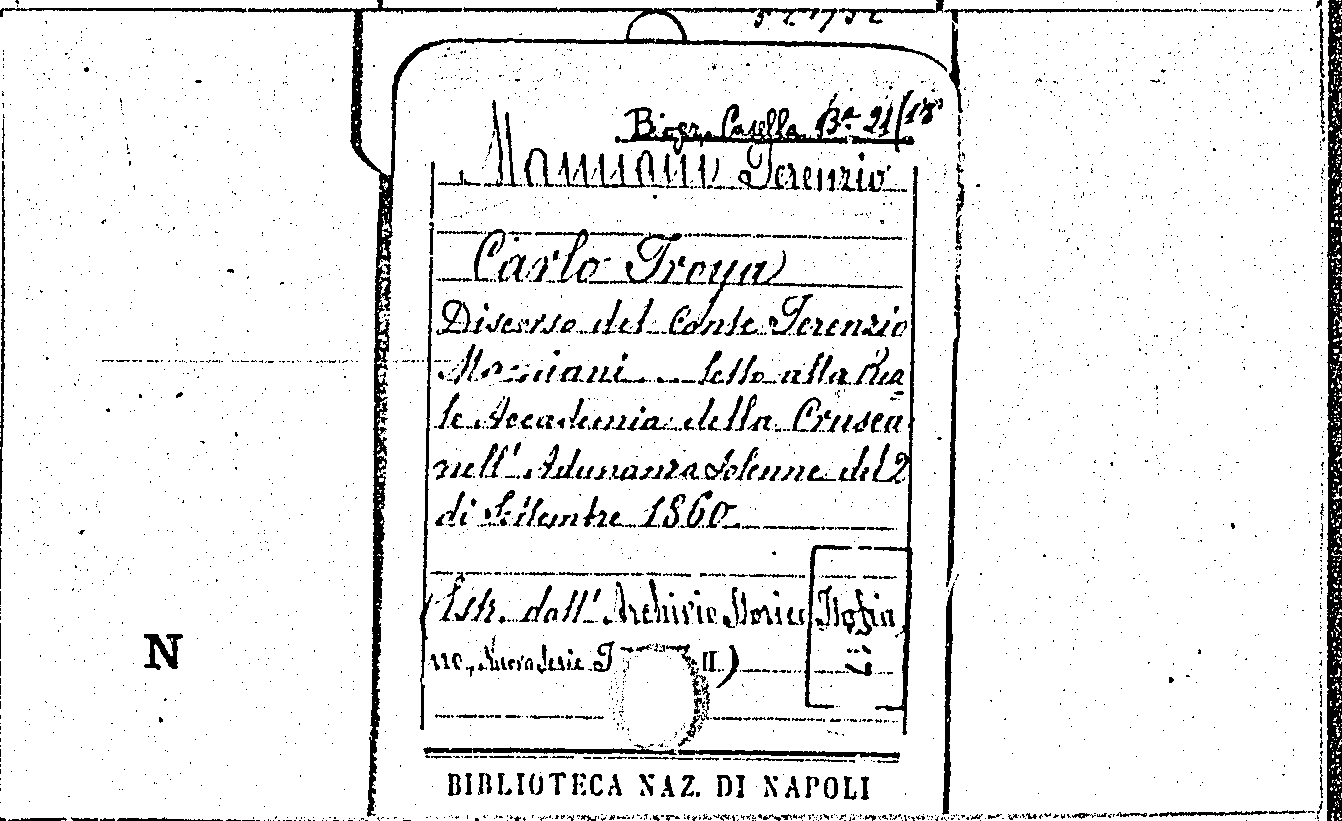 Biogr. Casella Bª 21/18
Mamiani Terenzio
Carlo Troya
Discorso del Conte Terenzio
Mamiani letto alla Rea
le Accademia della Crusca
nell' Adunanza Solenne del 2
di Settembre 1860
(Estr. dall' Archivio Storico Italia
no, Nuova Serie T II)
N
BIBLIOTECA NAZ. DI NAPOLI